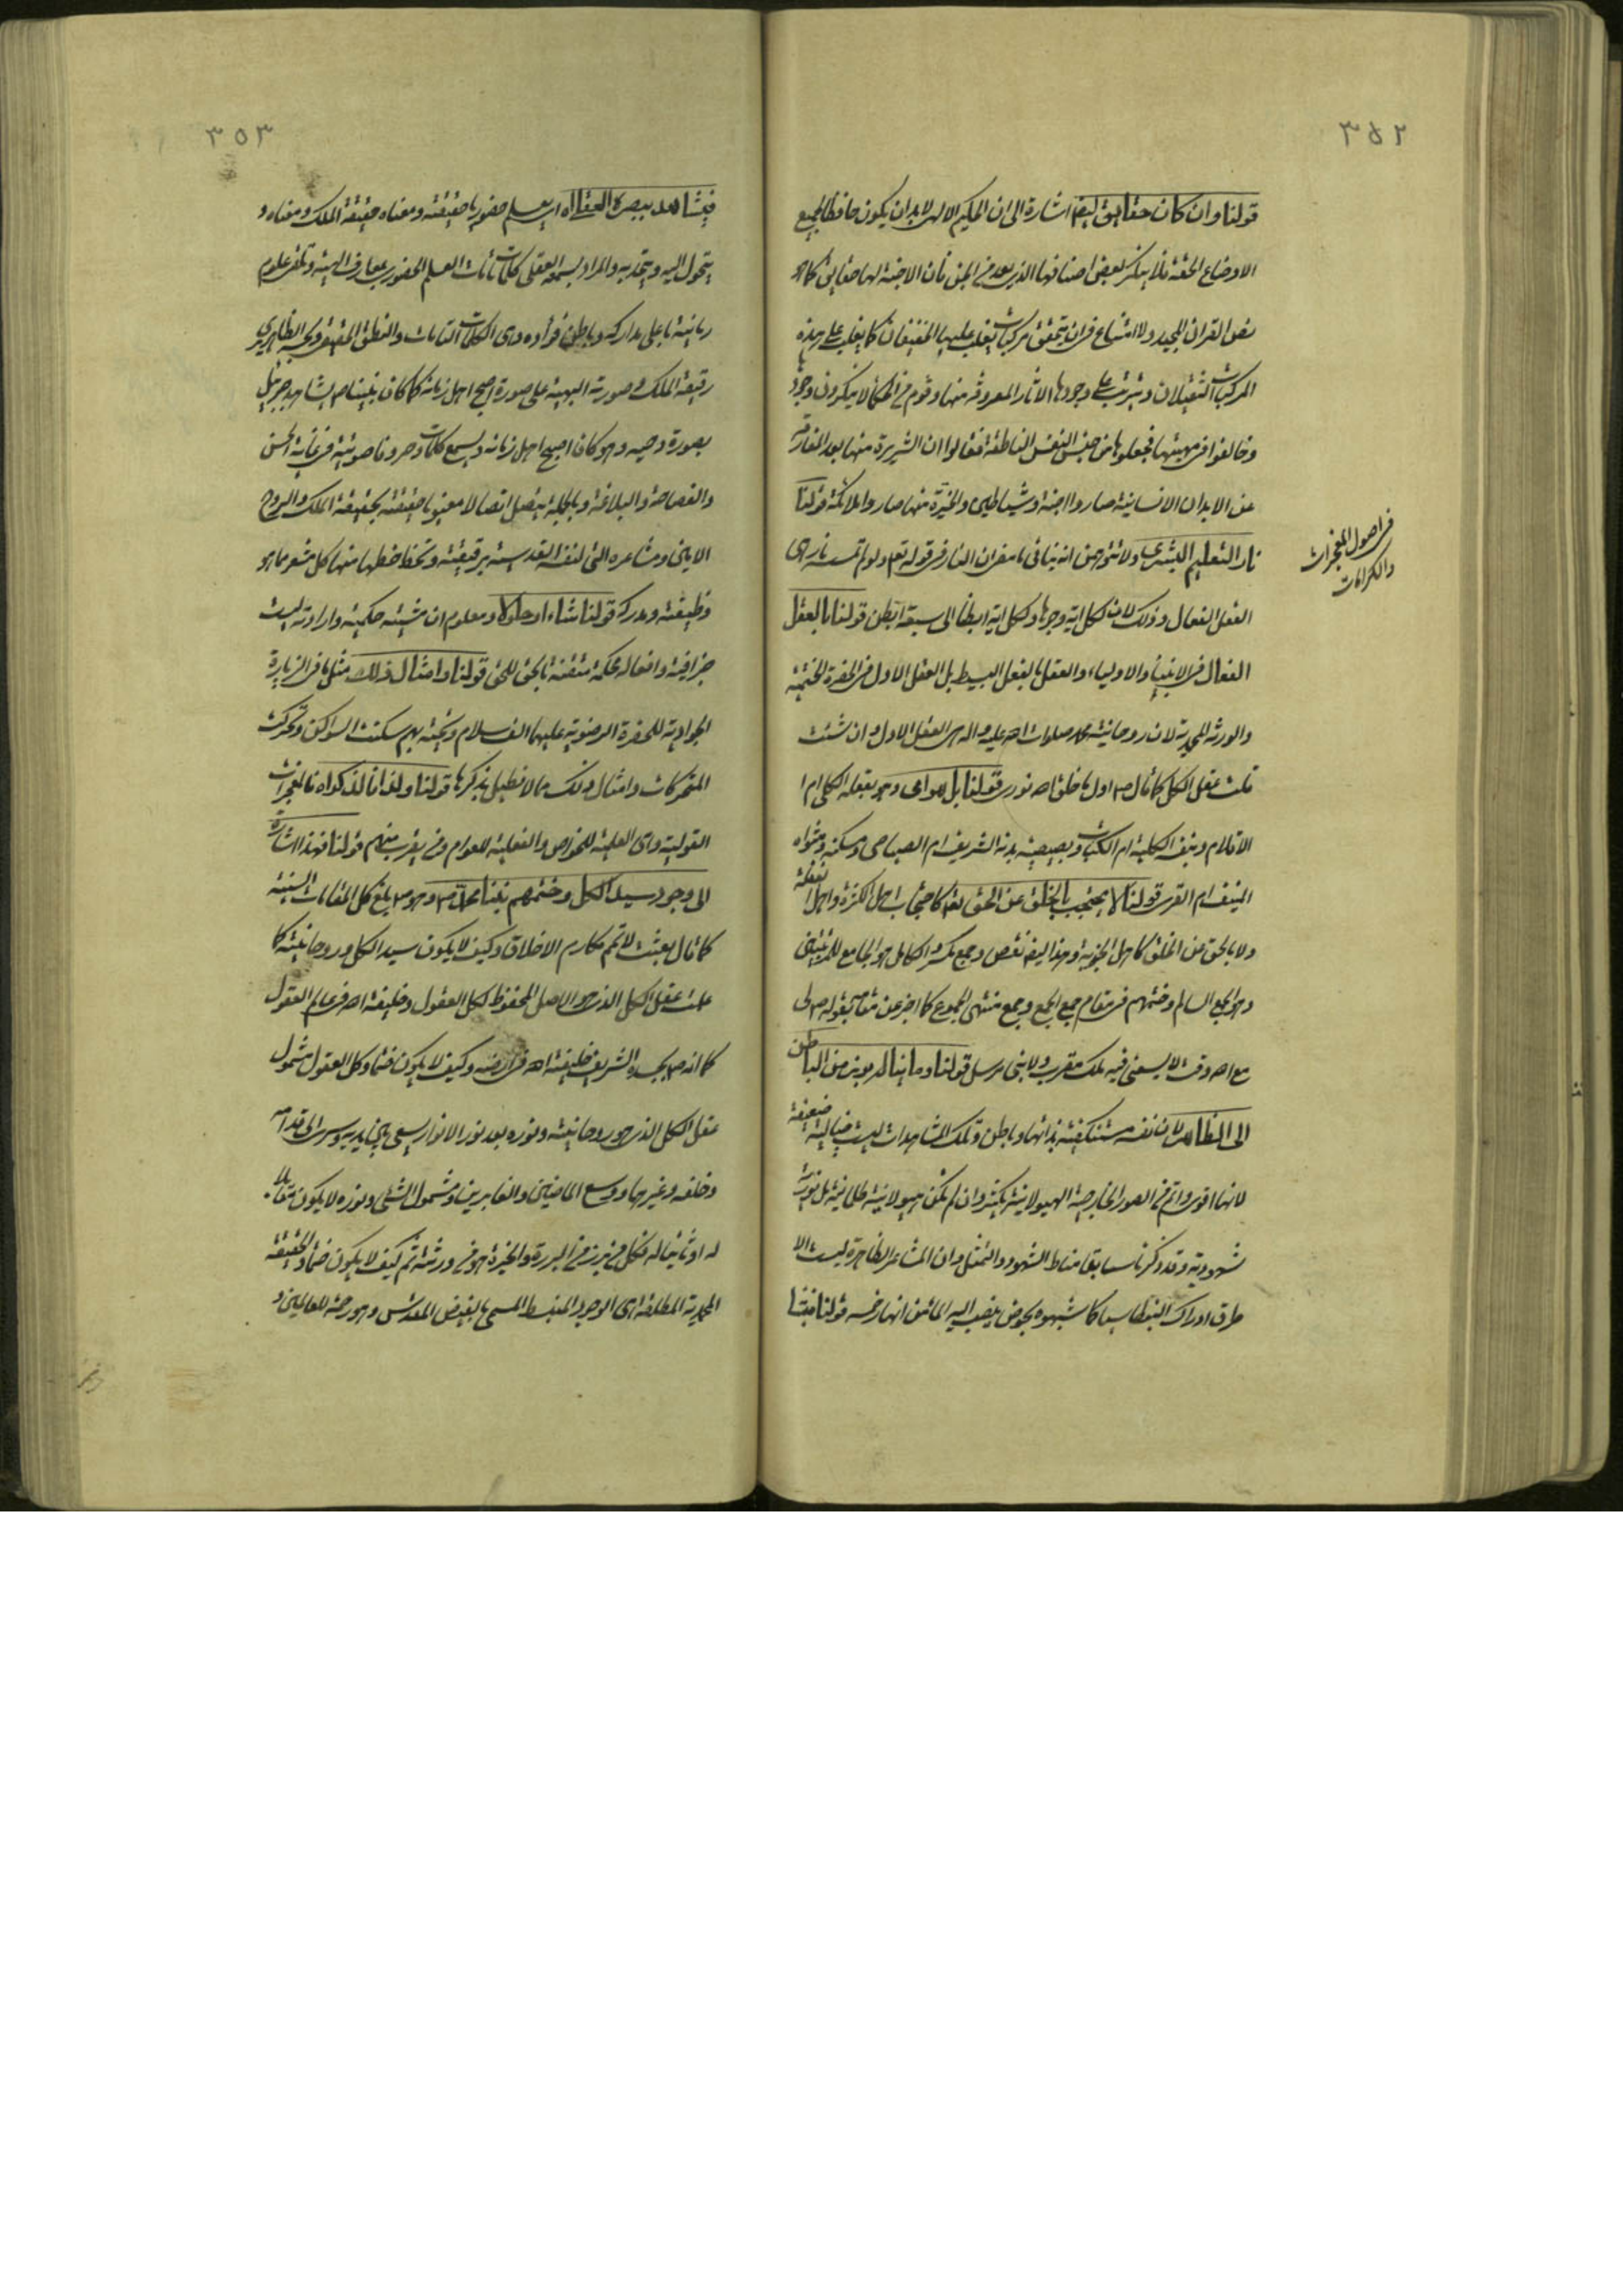 ٣٥٢
قولنا وان كان حقايق ايضا اشارة الى ان الحكيم الالهى لابد ان يكون حافظا لجميع
الاوضاع الحقة فلا ينكر بعض اصنافها الذى يعد من الجن فان الاجنة لها حقايق كما هو
نص القران المجيد ولا امتناع فى ان يتحقق مركبات يغلب عليها الخفيفان كما يغلب على هذه
المركبات الثقيلان ويترتب على وجودها الاثار المعروفة منها وقوم من الحكماء لا ينكرون وجودها
وخالفوا فى مهيتها فجعلوها من جنس النفس الناطقة فقالوا ان الشريرة منها بعد المفارقة
عن الابدان الانسانية صاروا اجنة وشياطين والخيرة منها صاروا ملائكة قولنا
نار التعليم البشرى ولا تتوحش انه ينافى ما سفر ان النار فى قوله تعالى ولو لم تمسسه نار هى
العقل الفعال وذلك لان لكل اية وجوها ولكل اية ابطنا الى سبعة ابطن قولنا بالعقل
الفعال فى الانبياء والاولياء والعقل بالفعل البسيط بل العقل الاول فى الحضرة الختمية
والورثة المحمدية لان روحانية محمد صلوات الله عليه واله هى العقل الاول وان شئت
قلت عقل الكل كما قال ص اول ما خلق الله نورى قولنا بل هو امى وهو بعقله الكلى ام
الاقلام وبنفسه الكلية ام الكتاب وبصيصية بدنه الشريف ام الصياصى ومسكنه ومثواه
المنيف ام القرى قولنا لا يحتجب بالخلق عن الحق لعله كاحتجاب اهل الكثرة واهل الغفلة
ولا بالحق عن الخلق كاهل الجذبة وهذا ايضا نقص وجمع مكسر والكامل هو الجامع للمرتبتين
وهو الجمع السالم وختمهم فى مقام جمع الجمع وجمع منتهى الجموع كما اخبر عن مقامه بقوله ص لى
مع الله وقت لا يسعنى فيه ملك مقرب ولا نبى مرسل قولنا وما ينالهم يبرز من الباطن
الى الظاهر لان نفسه مستكفية بذاتها وباطن وتلك المشاهدات ليست خيالية ضعيفة
لانها اقوى واتم من الصور الخارجية الهيولانية بكثير وان لم تكن هيولانية ظلمانية بل نورية
شهودية وقد ذكرنا سابقا مناط الشهود والتمثل وان المشاعر الظاهرة ليست الا
طرق ادراك البنطاسيا كما شبهوه بحوض ينصب اليه الماء من انهار خمسة قولنا فيشا
فى اصول المعجزات
والكرامات
٣٥٣
فيشاهد ببصره العقلى اه اى يعلم حضوريا حقيقته ومعناه حقيقة الملك ومعناه و
يتحول اليه ويتحد به والمراد بسمعه العقلى كلمات تامات العلم الحضورى بمعارف الهية وتلقى علوم
ربانية باعلى مداركه وباطن فؤاده وهى الكلمات التامات والنطق الحقيقى وبحسه الظاهرى يرى
رقيقة الملك وصورته البهية على صورة اصبح اهل زمانه كما كان نبينا ص يشاهد جبرئيل
بصورة دحية وهو كان اصبح اهل زمانه ويسمع كلمات وحروفا صوتية فى غاية الحسن
والفصاحة والبلاغة وبالجملة يتصل اتصالا معنويا حقيقته بحقيقة الملك والروح
الامين ومشاعره التى لنفسه القدسية برقيقته وتحفظ حظها منها كل مشعر مما هو
وظيفته ومدركه قولنا شاء ارحلوا ومعلوم ان مشيته حكمية وارادته ليست
جزافية وافعاله محكمة متقنة بالحق للحق قولنا وامثال ذلك مثل ما فى الزيارة
الجوادية للحضرة الرضوية عليهما الف سلام وتحية بهم سكنت السواكن وتحركت
المتحركات وامثال ذلك مما لا نطيل بذكرها قولنا ولذا قالوا كذا اه فالمعجزات
القولية وهى العلمية للخواص والفعلية للعوام ومن يقرب منهم قولنا فهذا اشارة
الى وجود سيد الكل وختمهم نبينا محمد ص وهو ص بلغ كل المقامات السنية
كما قال بعثت لاتمم مكارم الاخلاق وكيف لا يكون سيد الكل وروحانيته كما
علمت عقل الكل الذى هو الاصل المحفوظ لكل العقول وخليفة الله فى عالم العقول
كما انه ص بجسده الشريف خليفة الله فى ارضه وكيف لا يكون ختما وكل العقول مشمول
عقل الكل الذى هو روحانيته ونوره بعد نور الانوار يسعى بين يديه وسرى الى قدامه
وخلفه وغيرهما ووسع الماضين والغابرين ومشمول الشئ ونوره لا يكون مقابلا
له او ثانيا له فكل من برز من البررة والخيرة هو من ورثته ثم كيف لا يكون ختما والحقيقة
المحمدية المطلقة هى الوجود المنبسط المسمى بالفيض المقدس وهو رحمة للعالمين و